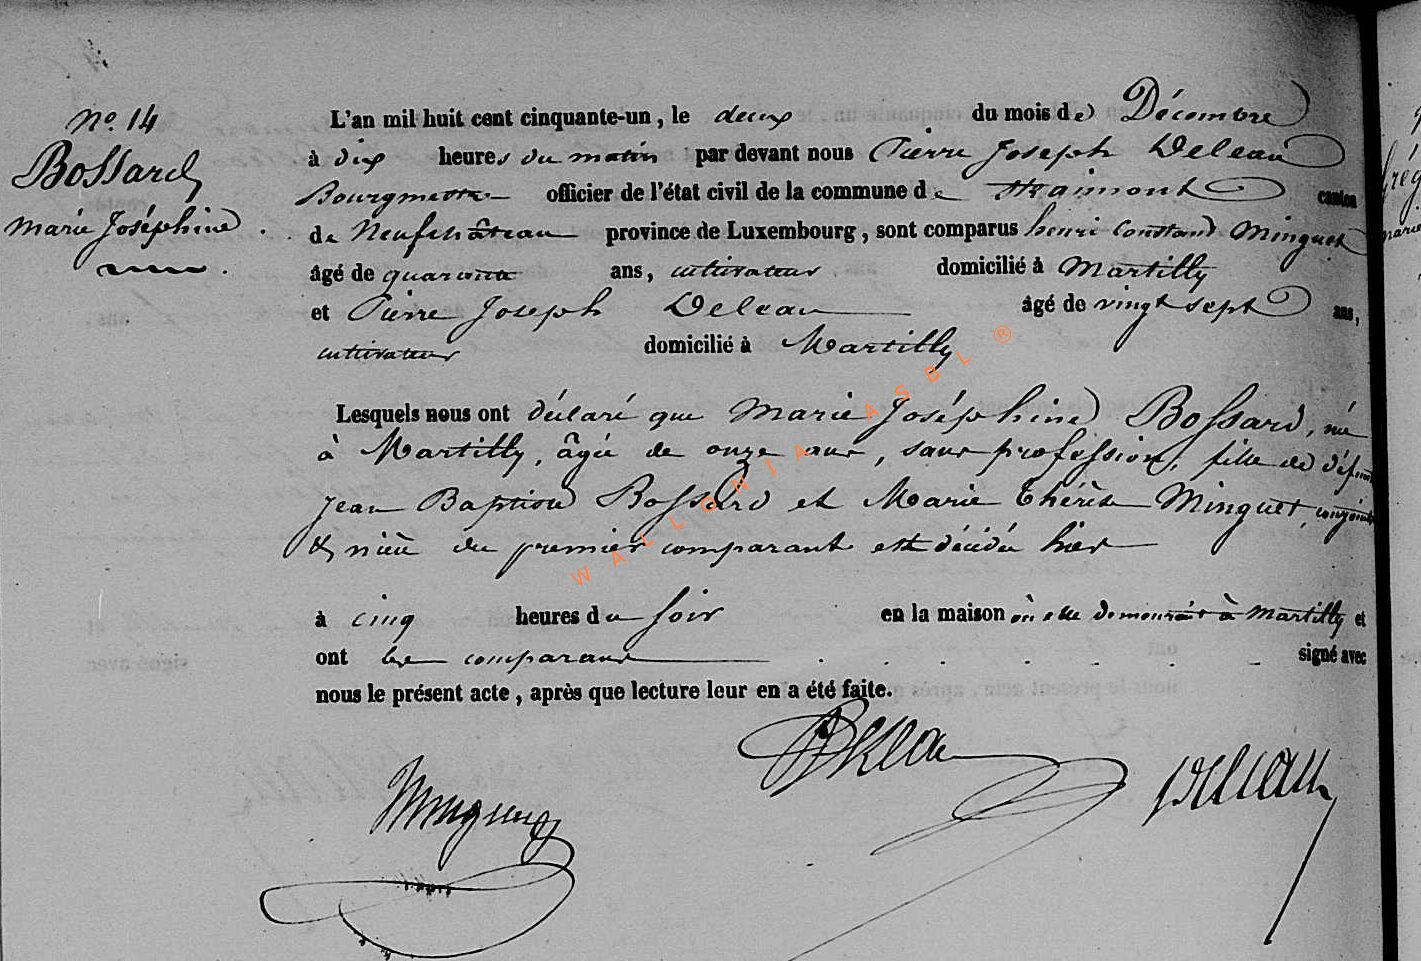 N.º 14
Bossard
Marie Joséphine
L'an mil huit cent cinquante-un, le deux du mois de Décembre
à dix heures du matin par devant nous Pierre Joseph Deleau
Bourgmestre officier de l'état civil de la commune de Straimont canton
de Neufchâteau province de Luxembourg, sont comparus henri Constand Minguet
âgé de quarante ans, cultivateur domicilié à Martilly
et Pierre Joseph Deleau âgé de vingt sept ans,
cultivateur domicilié à Martilly
Lesquels nous ont déclaré que Marie Joséphine Bossard, née
à Martilly, âgée de onze ans, sans profession, fille de défunts
Jean Baptiste Bossard et Marie Thérèse Minguet, conjoints
& nièce du premier comparant est décédée hier
à cinq heures du soir en la maison où elle demeurait à Martilly et
ont les comparans signé avec
nous le présent acte, après que lecture leur en a été faite.
Deleau
Deleau
Minguet
WALLONIA ASBL ®